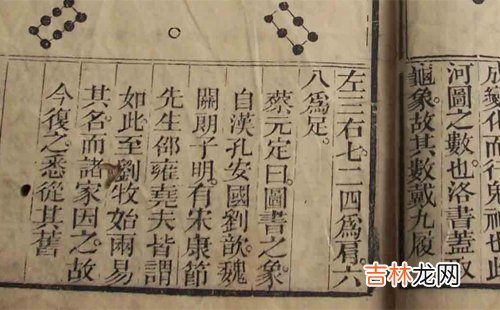 成變化而行鬼神也此
河圖之數也洛書蓋取
龜象。故其數戴九履
左三右七。二四爲肩。六
八爲足。
蔡元定曰。圖書之象
自漢孔安國劉歆。魏
關朗子明。有宋康節
先生邵雍堯夫皆謂
如此。至劉牧始兩易
其名。而諸家因之。故
今復之。悉從其舊
吉林龙网